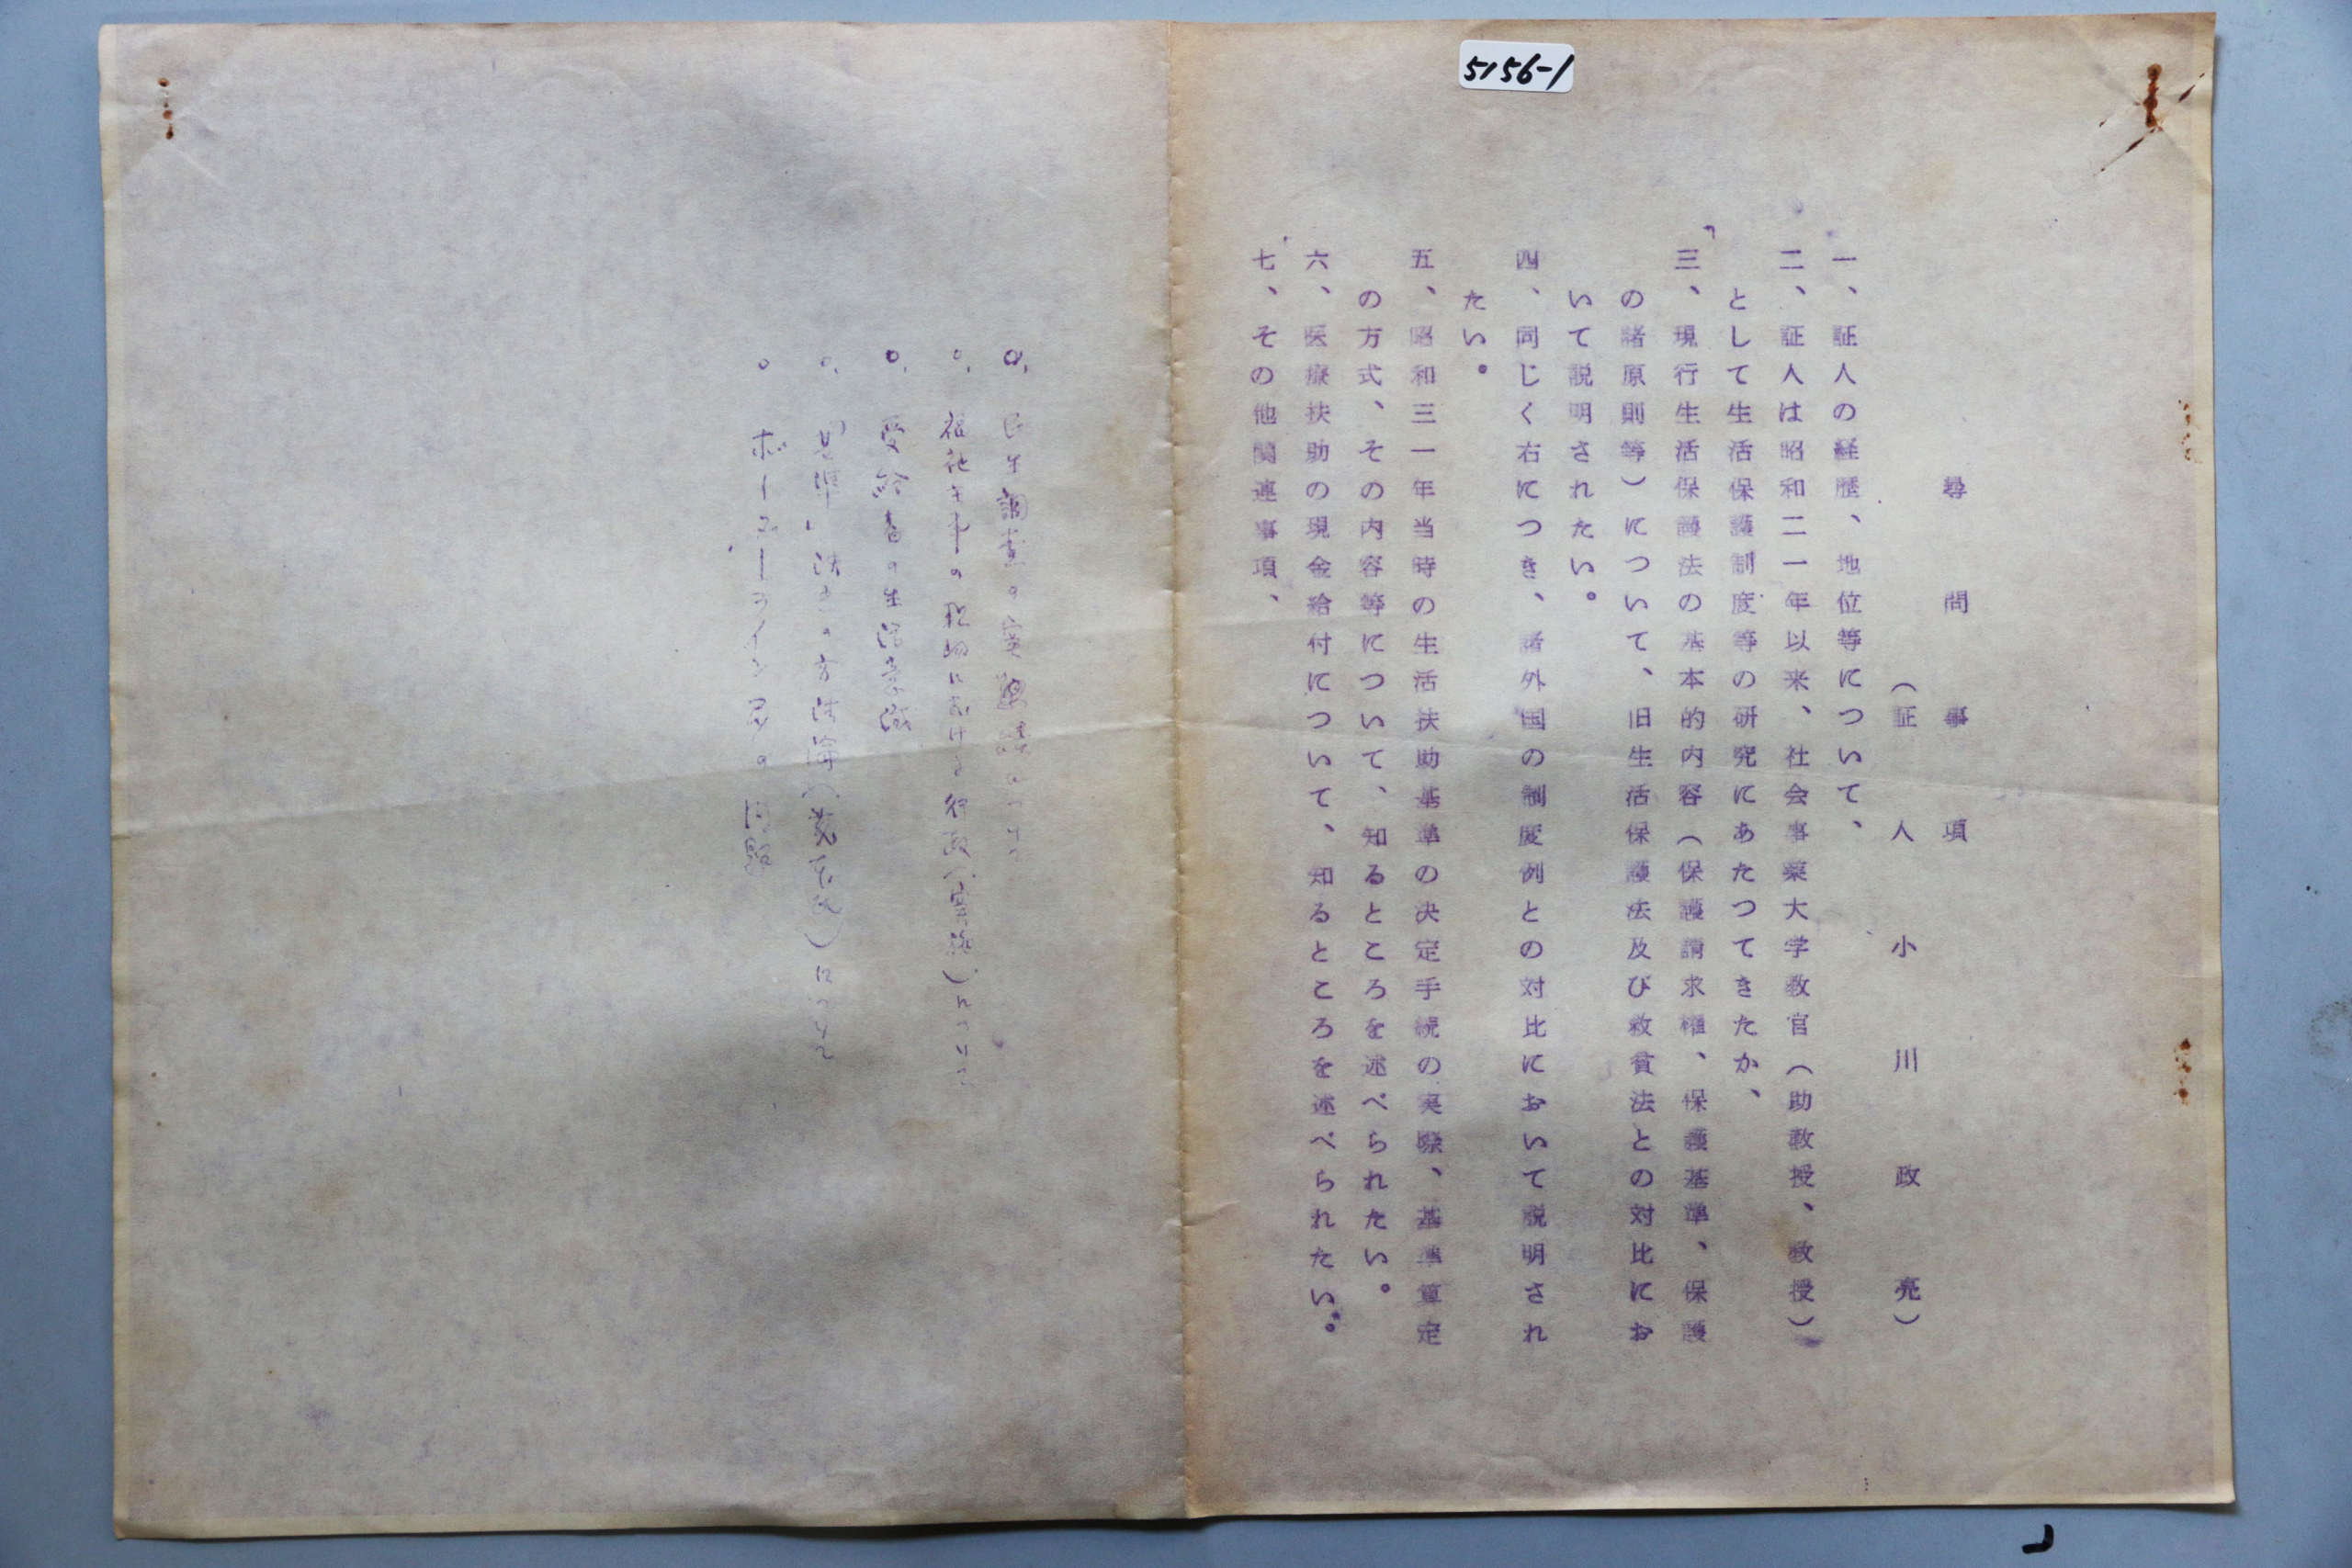 5156-1
尋問事項
（証人 小川政亮）
一、証人の経歴、地位等について、
二、証人は昭和二一年以来、社会事業大学教官（助教授、教授）
として生活保護制度等の研究にあたつてきたか、
三、現行生活保護法の基本的内容（保護請求権、保護基準、保護
の諸原則等）について、旧生活保護法及び救貧法との対比にお
いて説明されたい。
四、同じく右につき、諸外国の制度例との対比において説明され
たい。
五、昭和三一年当時の生活扶助基準の決定手続の実際、基準算定
の方式、その内容等について、知るところを述べられたい。
六、医療扶助の現金給付について、知るところを述べられたい。
七、その他関連事項、
○、調査の実
○、福祉における行政（実務）について
○、受給者の生活意識
○、基準決定の方法論（）について
○ ボーダーライン層の問題